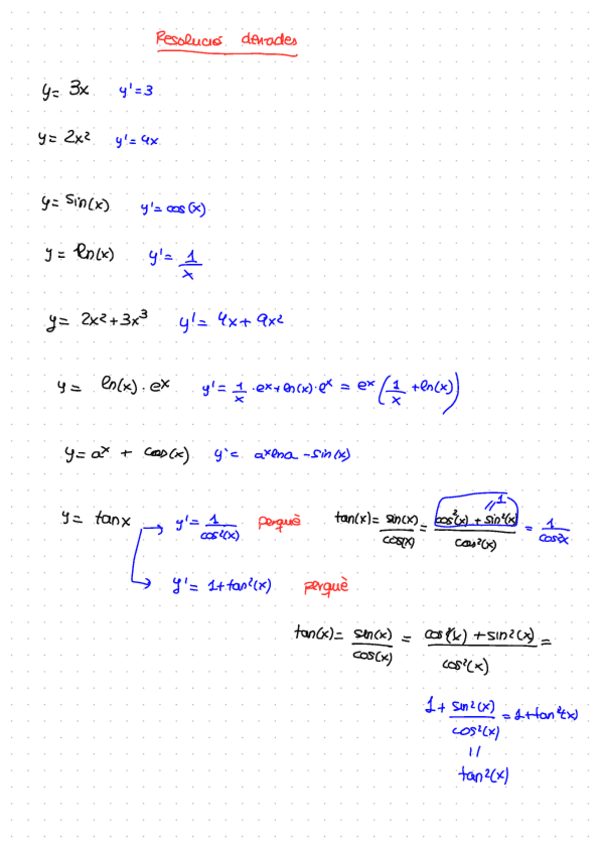 Resolució derivades
y= 3x y'=3
y= 2x² y'= 4x
y= sin(x) y'= cos(x)
y= ln(x) y'= 1/x
y= 2x²+3x³ y'= 4x+9x²
y= ln(x)·eˣ y'= 1/x ·eˣ+ln(x)·eˣ = eˣ(1/x +ln(x))
y= aˣ + cos(x) y'= aˣlna -sin(x)
y= tanx y'= 1/cos²(x) perquè tan(x)= sin(x)/cos(x) = cos²(x)+sin²(x)/cos²(x) = 1/cos²x
=1
y'= 1+tan²(x) perquè
tan(x)= sin(x)/cos(x) = cos²(x)+sin²(x)/cos²(x) =
1+ sin²(x)/cos²(x) = 1+tan²(x)
=
tan²(x)